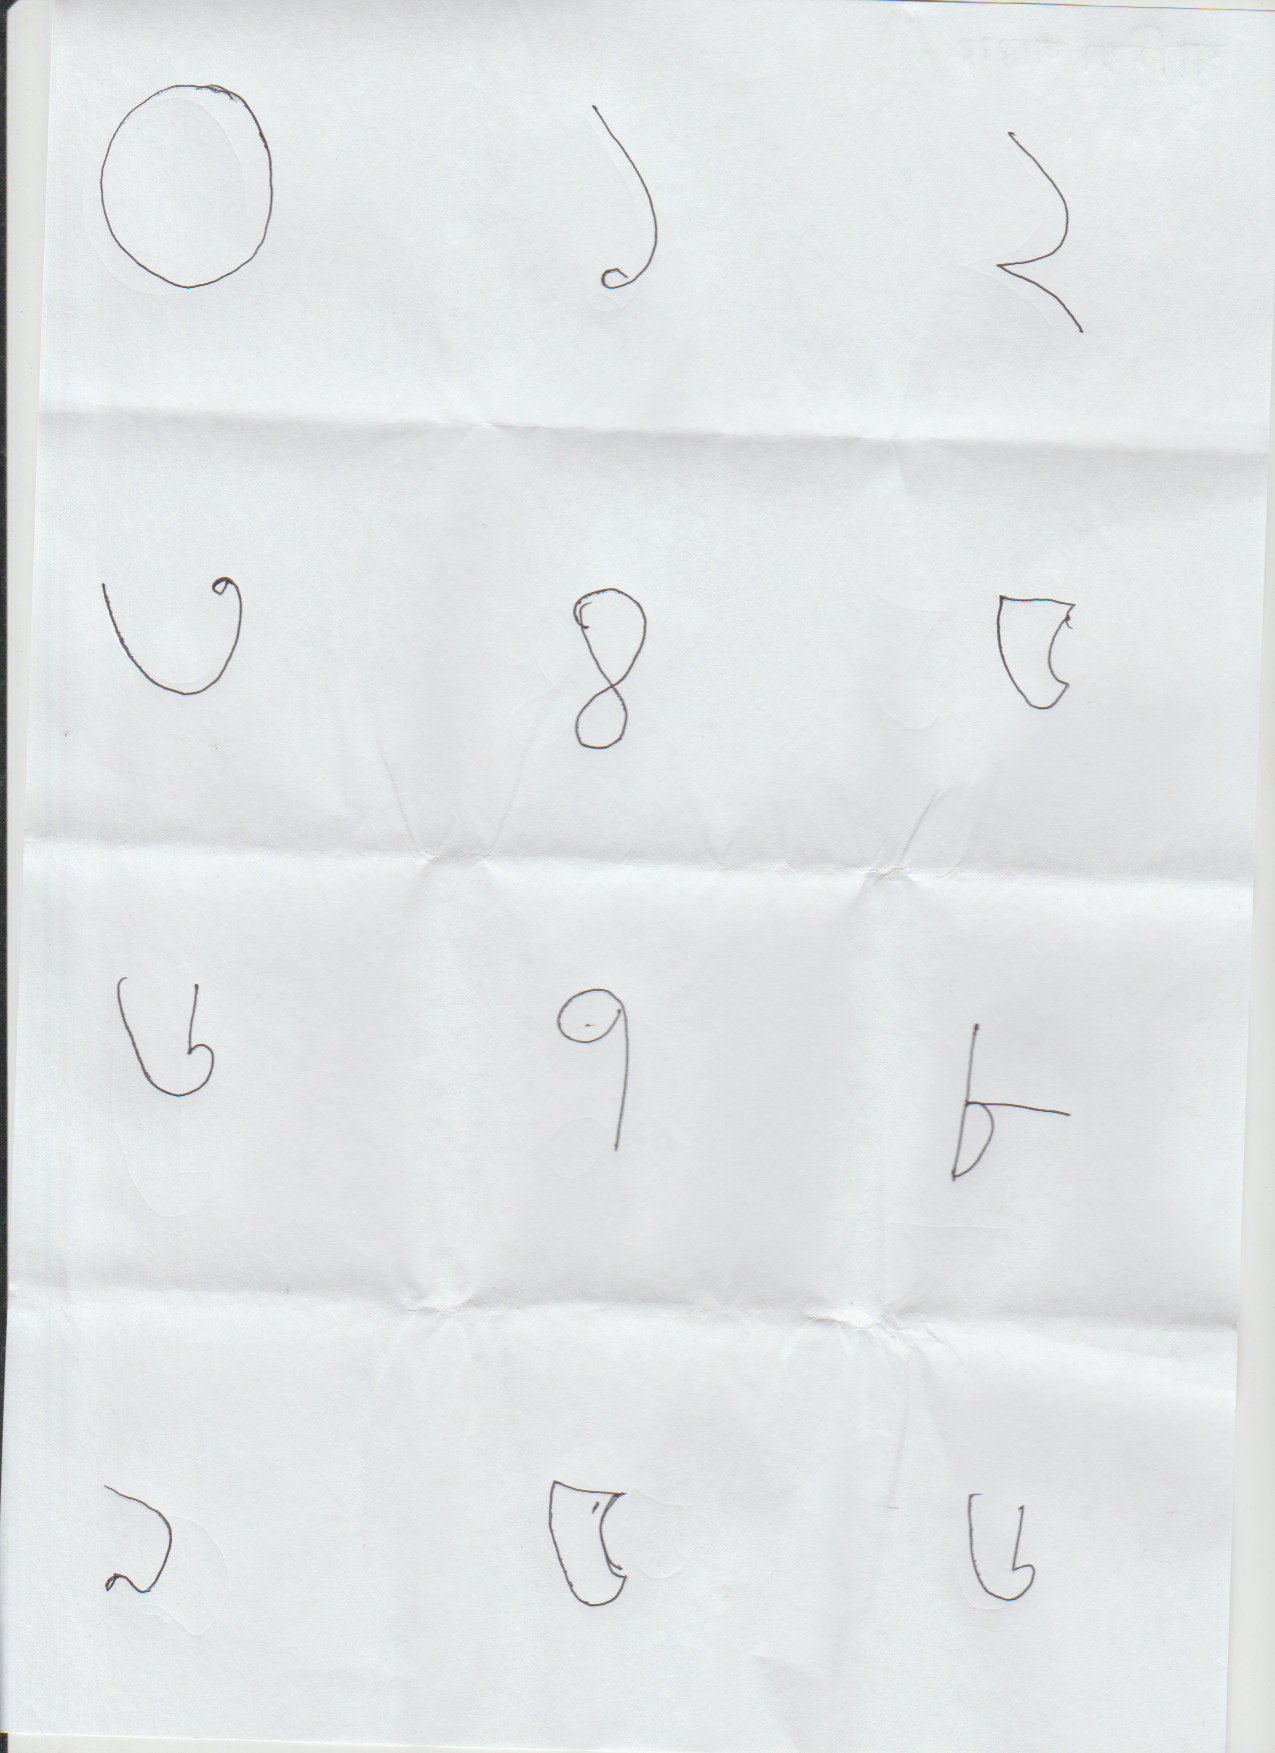 ০ ১ ২
৩ ৪ ৫
৬ ৭ ৮
৯ ৫ ৬